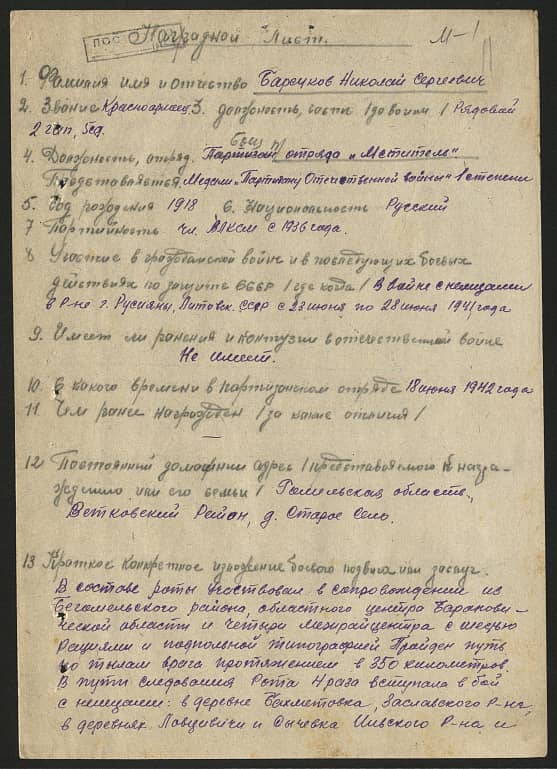 Наградной Лист.
М-1
1. Фамилия имя и отчество Барсуков Николай Сергеевич
2. Звание Красноармеец 3. должность, часть /до войны / Рядовой
2 гап,
бывш
4. Должность, отряд. Партизан отряда „Мститель"
Представляется Медали „Партизану Отечественной войны" 1 степени
5. Год рождения 1918 6. Национальность Русский
7 Партийность чл. ВЛКСМ с 1936 года.
8 Участие в гражданской войне и в последующих боевых
действиях по защите СССР / где когда / В войне с немцами
в р-не г. Русияны, Литовск. ССР с 23 июня по 28 июня 1941 года
9. Имеет ли ранения и контузии в отечественной войне
Не имеет.
10. С какого времени в партизанском отряде 18 июня 1942 года
11. Чем ранее награжден / за какие отличия /
—
12 Постоянный домашний адрес / представляемого к награ-
ждению или его семьи / Гомельская область,
Ветковский Район, д. Старое Село.
13 Краткое конкретное изложение боевого подвига или заслуг.
В составе роты участвовал в сопровождении из
Бегомельского района, областного центра Баранови-
ческой области и четыри межрайцентра с шедью
Рациями и подпольной типографией Пройден путь
по тылам врага протяжением в 350 километров.
В пути следования Рота 4 раза вступала в бой
с немцами: в деревне Бахметовка, Заславского Р-на,
в деревнях Ловцивичи и Сычевка Ильского Р-на и